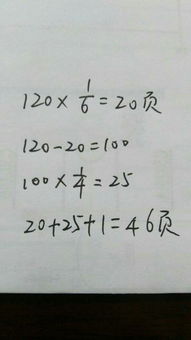 120 × 1/6 = 20页
120-20=100
100 × 1/4 = 25
20+25+1=46页